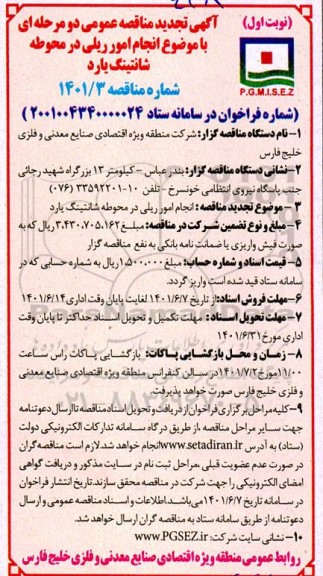 (نوبت اول)
آگهی تجدید مناقصه عمومی دو مرحله ای
با موضوع انجام امور ریلی در محوطه
شانتینگ یارد
P.G.M.I.S.E.Z
شماره مناقصه ۱۴۰۱/۳
(شماره فراخوان در سامانه ستاد ۲۰۰۱۰۰۴۳۴۰۰۰۰۰۲۴)
۱- نام دستگاه مناقصه گزار: شرکت منطقه ویژه اقتصادی صنایع معدنی و فلزی
خلیج فارس
۲- نشانی دستگاه مناقصه گزار: بندرعباس - کیلومتر ۱۳ بزرگراه شهید رجائی
جنب پاسگاه نیروی انتظامی خونسرخ - تلفن ۱۰-۳۳۵۹۲۲۰۱ (۰۷۶)
۳- موضوع تجدید مناقصه: انجام امور ریلی در محوطه شانتینگ یارد
۴- مبلغ و نوع تضمین شرکت در مناقصه: مبلغ ۳.۴۳۰.۷۰۵.۱۶۲ ریال که به
صورت فیش واریزی یا ضمانت نامه بانکی به نفع مناقصه گزار
۵- قیمت اسناد و شماره حساب: مبلغ ۱،۵۰۰،۰۰۰ ریال به شماره حسابی که در
سامانه ستاد قید شده است واریز گردد.
۶- مهلت فروش اسناد: از تاریخ ۱۴۰۱/۶/۷ لغایت پایان وقت اداری ۱۴۰۱/۶/۱۴
۷- مهلت تحویل اسناد: مهلت تکمیل و تحویل اسناد حداکثر تا پایان وقت
اداری مورخ ۱۴۰۱/۶/۳۱
۸- زمان و محل بازگشایی پاکات: بازگشایی پاکات راس ساعت
۱۱/۰۰ مورخ ۱۴۰۱/۷/۲ در سالن کنفرانس منطقه ویژه اقتصادی صنایع معدنی
و فلزی خلیج فارس صورت خواهد پذیرفت.
۹- کلیه مراحل برگزاری فراخوان از دریافت و تحویل اسناد مناقصه تا ارسال دعوتنامه
جهت سایر مراحل مناقصه، از طریق درگاه سامانه تدارکات الکترونیکی دولت
(ستاد) به آدرس www.setadiran.ir انجام خواهد شد. لازم است مناقصه گران
در صورت عدم عضویت قبلی، مراحل ثبت نام در سایت مذکور و دریافت گواهی
امضای الکترونیکی را جهت شرکت در مناقصه محقق سازند. تاریخ انتشار فراخوان
در سامانه تاریخ ۱۴۰۱/۶/۷ می باشد. اطلاعات و اسناد مناقصه عمومی و ارسال
دعوتنامه از طریق سامانه ستاد به مناقصه گران ارسال خواهد شد.
۱۰- نشانی سایت شرکت: www.PGSEZ.ir
روابط عمومی منطقه ویژه اقتصادی صنایع معدنی و فلزی خلیج فارس